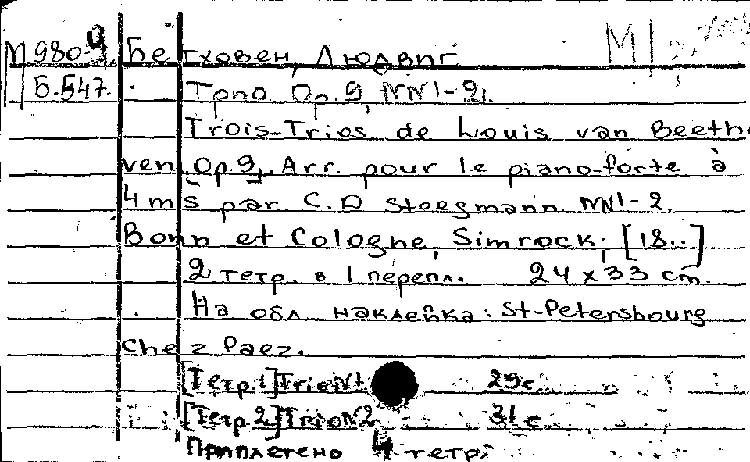 М 980-9 Бетховен, Людвиг М
Б.547. Трио Op. 9, NN 1-2.
Trois Trios de Louis van Beetho
ven Op. 9, Arr. pour le piano-forte à
4 ms par C. D Steegmann NN 1-2.
Bonn et Cologne, Simrock, [18..]
2 тетр. в 1 перепл. 24 x 33 cm.
На обл наклейка: St-Petersbourg
chez Paez.
[Тетр. 1] Trio N1 29 c.
[Тетр. 2] Trio N2 31 c
Приплетено 4 тетр.